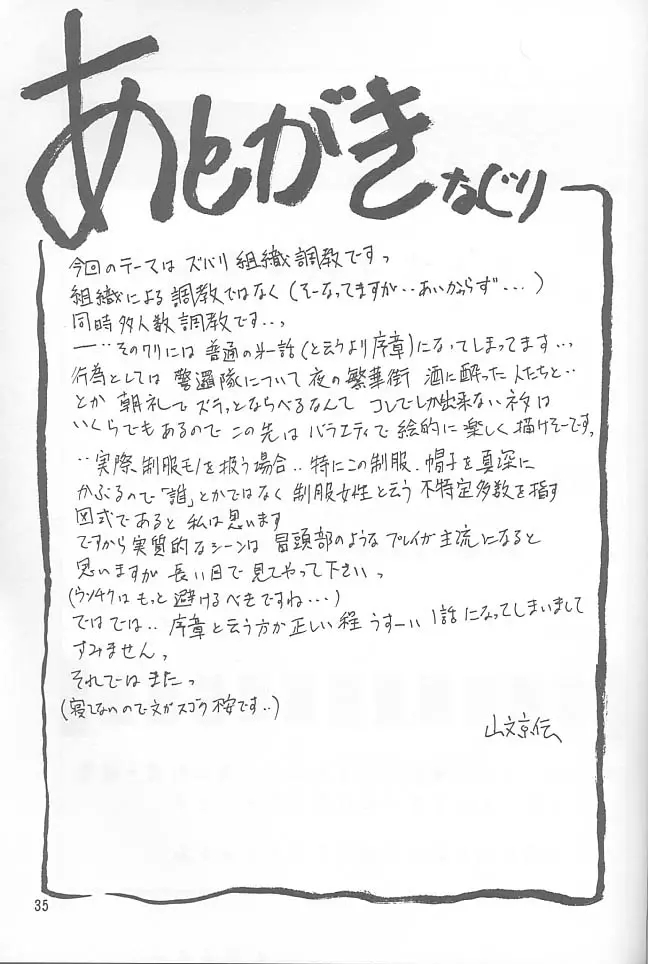 あとがき なぐり
今回のテーマは ズバリ 組織調教ですっ
組織による 調教ではなく (そーなってますが‥あいかわらず‥・)
同時多人数調教です‥っ
一‥そのワリには 普通の第一話(と云うより序章)になってしまってます‥っ
行為としては 警邏隊について 夜の繁華街 酒に酔った人たちと‥
とか 朝礼で ズラッとならべるなんて コレでしか出来ないネタは
いくらでもあるので この先は バラエティで 絵的に 楽しく描けそーです。
‥実際、制服モノを扱う場合‥特にこの制服、帽子を真深に
かぶるので「誰」とかではなく 制服女性と云う 不特定多数を指す
図式であると 私は思います
ですから実質的なシーンは 冒頭部のような プレイが主流になると
思いますが 長い目で 見てやって下さいっ
(ウンチクはもっと避けるべきですね‥・)
ではでは‥ 序章と云う方が正しい程 うすーい 1話になってしまいまして
すみませんっ
それでは またっ
(寝てないので文がスゴク不安です‥)
山文京伝
35